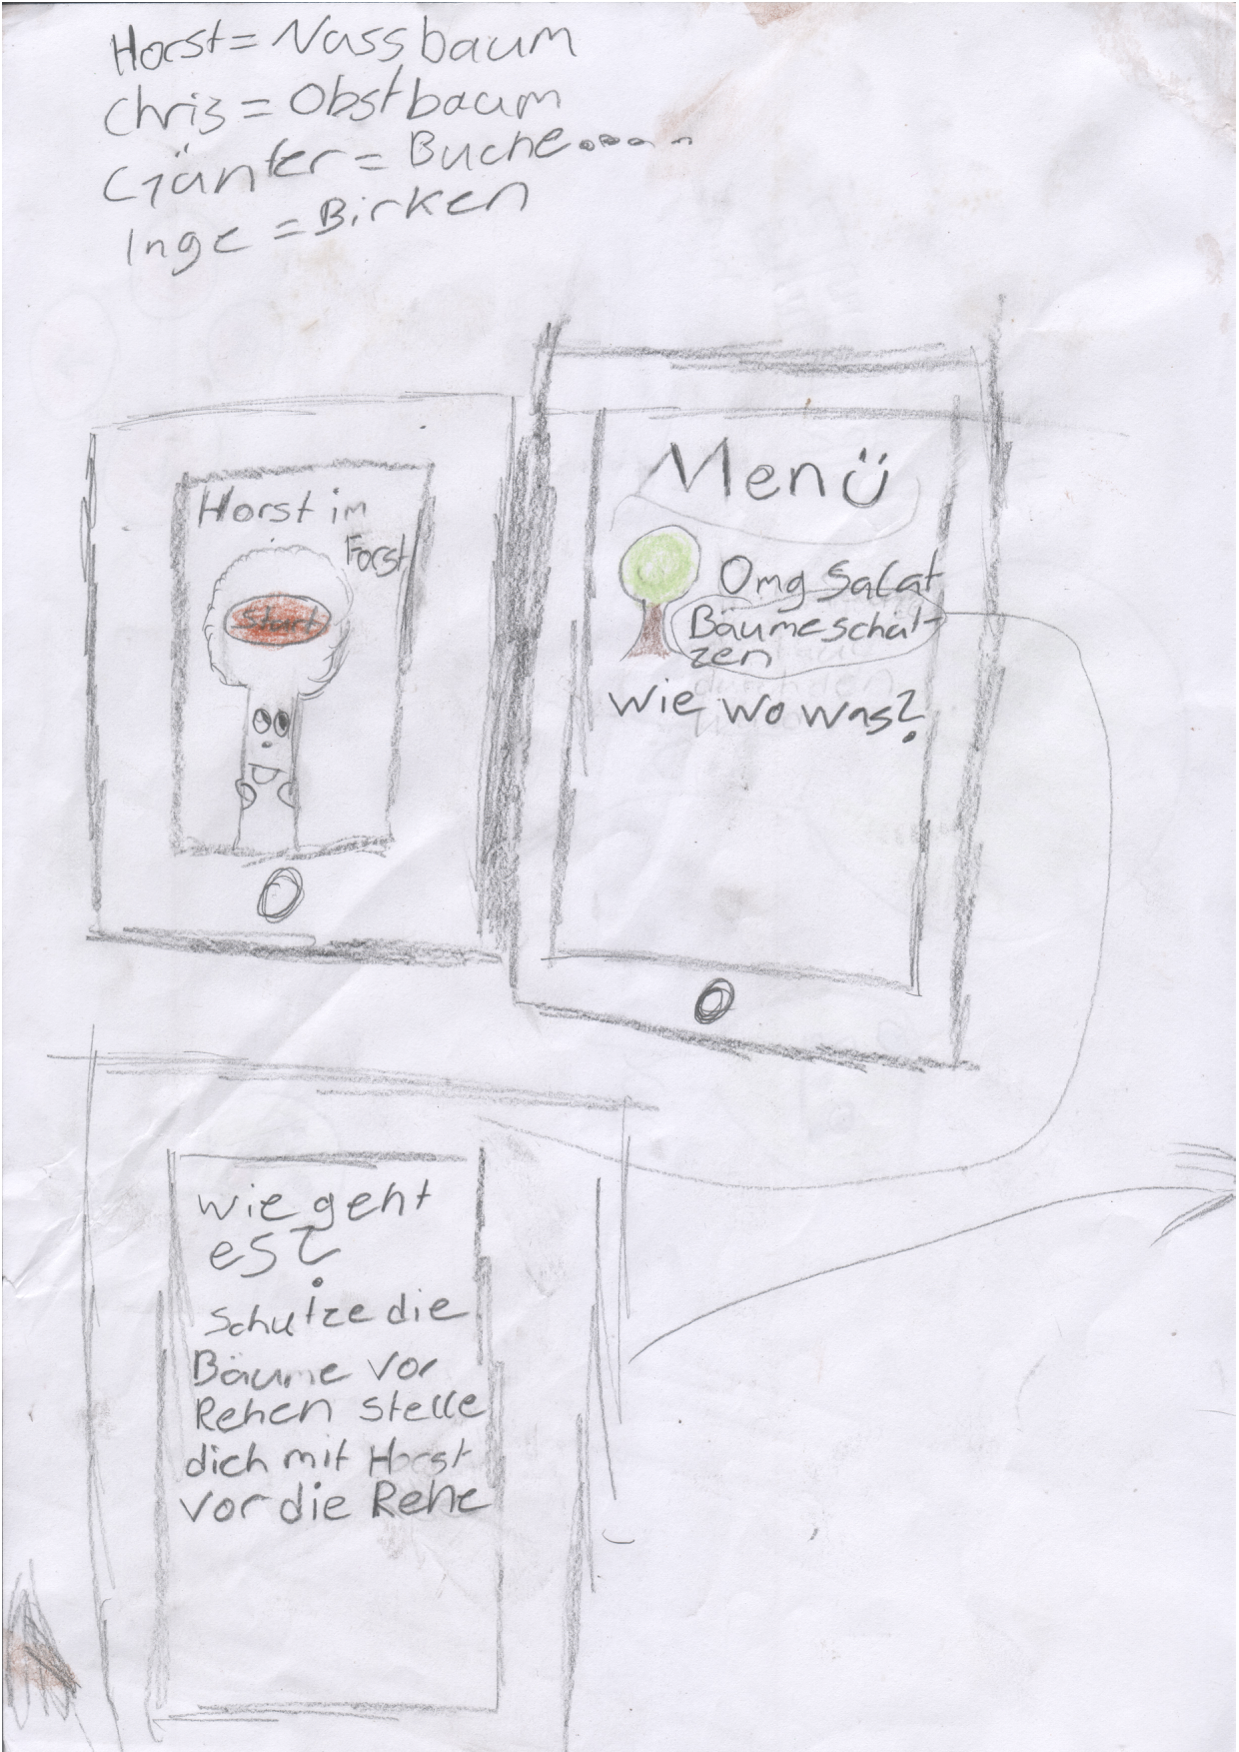 Horst = Nassbaum
Chris = Obstbaum
Günter = Buche.....
Inge = Birken
Horst im
Forst
Start
Menü
Omg Salat
Bäumeschüt-
zen
Wie wo was?
Wie geht
es?
Schutze die
Bäume vor
Rehen stelle
dich mit Horst
vor die Rehe